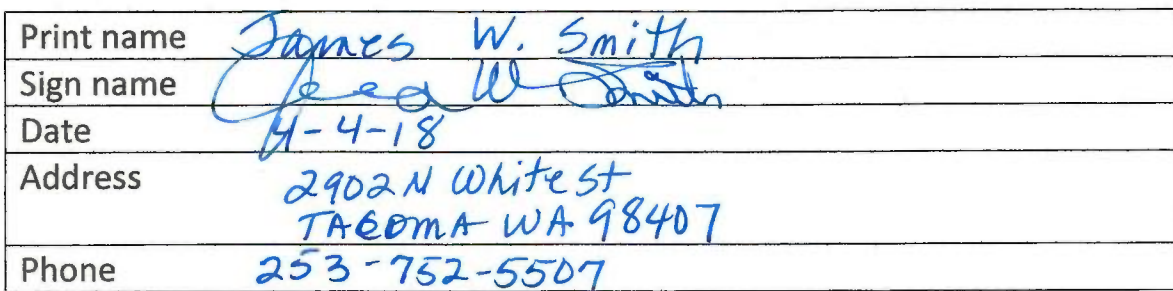 Print name James W. Smith
Sign name James W Smith
Date 4-4-18
Address 2902 N White St
TACOMA WA 98407
Phone 253-752-5507